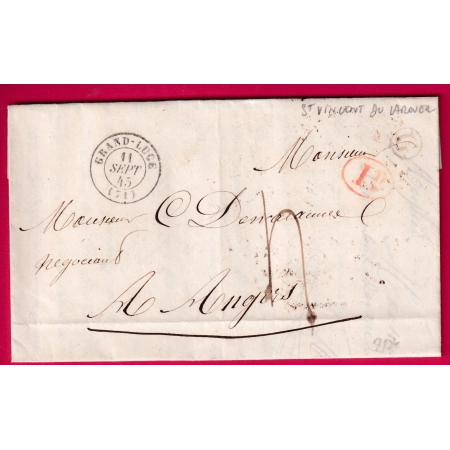 ST VINCENT DU LOROUER
GRAND-LUCÉ
11
SEPT
45
(71)
Monsieur
Monsieur C
négociant
A Angers